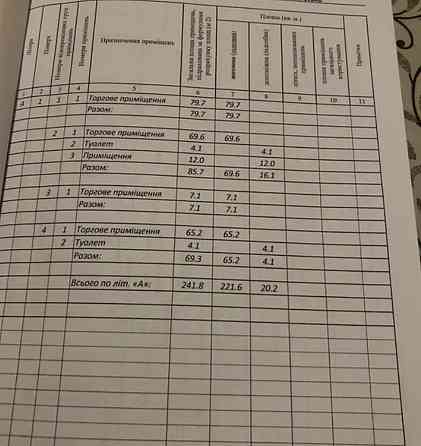 Площа (кв. м.)
Поверх
Номери приміщень
Призначення приміщень
Загальна площа приміщень, підрахована за формулами розрахунку площ (м 2)
допоміжна (підсобна)
Примітки
1 2 3 4 5 6 7 8 9 10 11
А 1 1 1 Торгове приміщення 79.7 79.7
Разом: 79.7 79.7
2 1 Торгове приміщення 69.6 69.6
2 Туалет 4.1 4.1
3 Приміщення 12.0 12.0
Разом: 85.7 69.6 16.1
3 1 Торгове приміщення 7.1 7.1
Разом: 7.1 7.1
4 1 Торгове приміщення 65.2 65.2
2 Туалет 4.1 4.1
Разом: 69.3 65.2 4.1
Всього по літ. «А»: 241.8 221.6 20.2